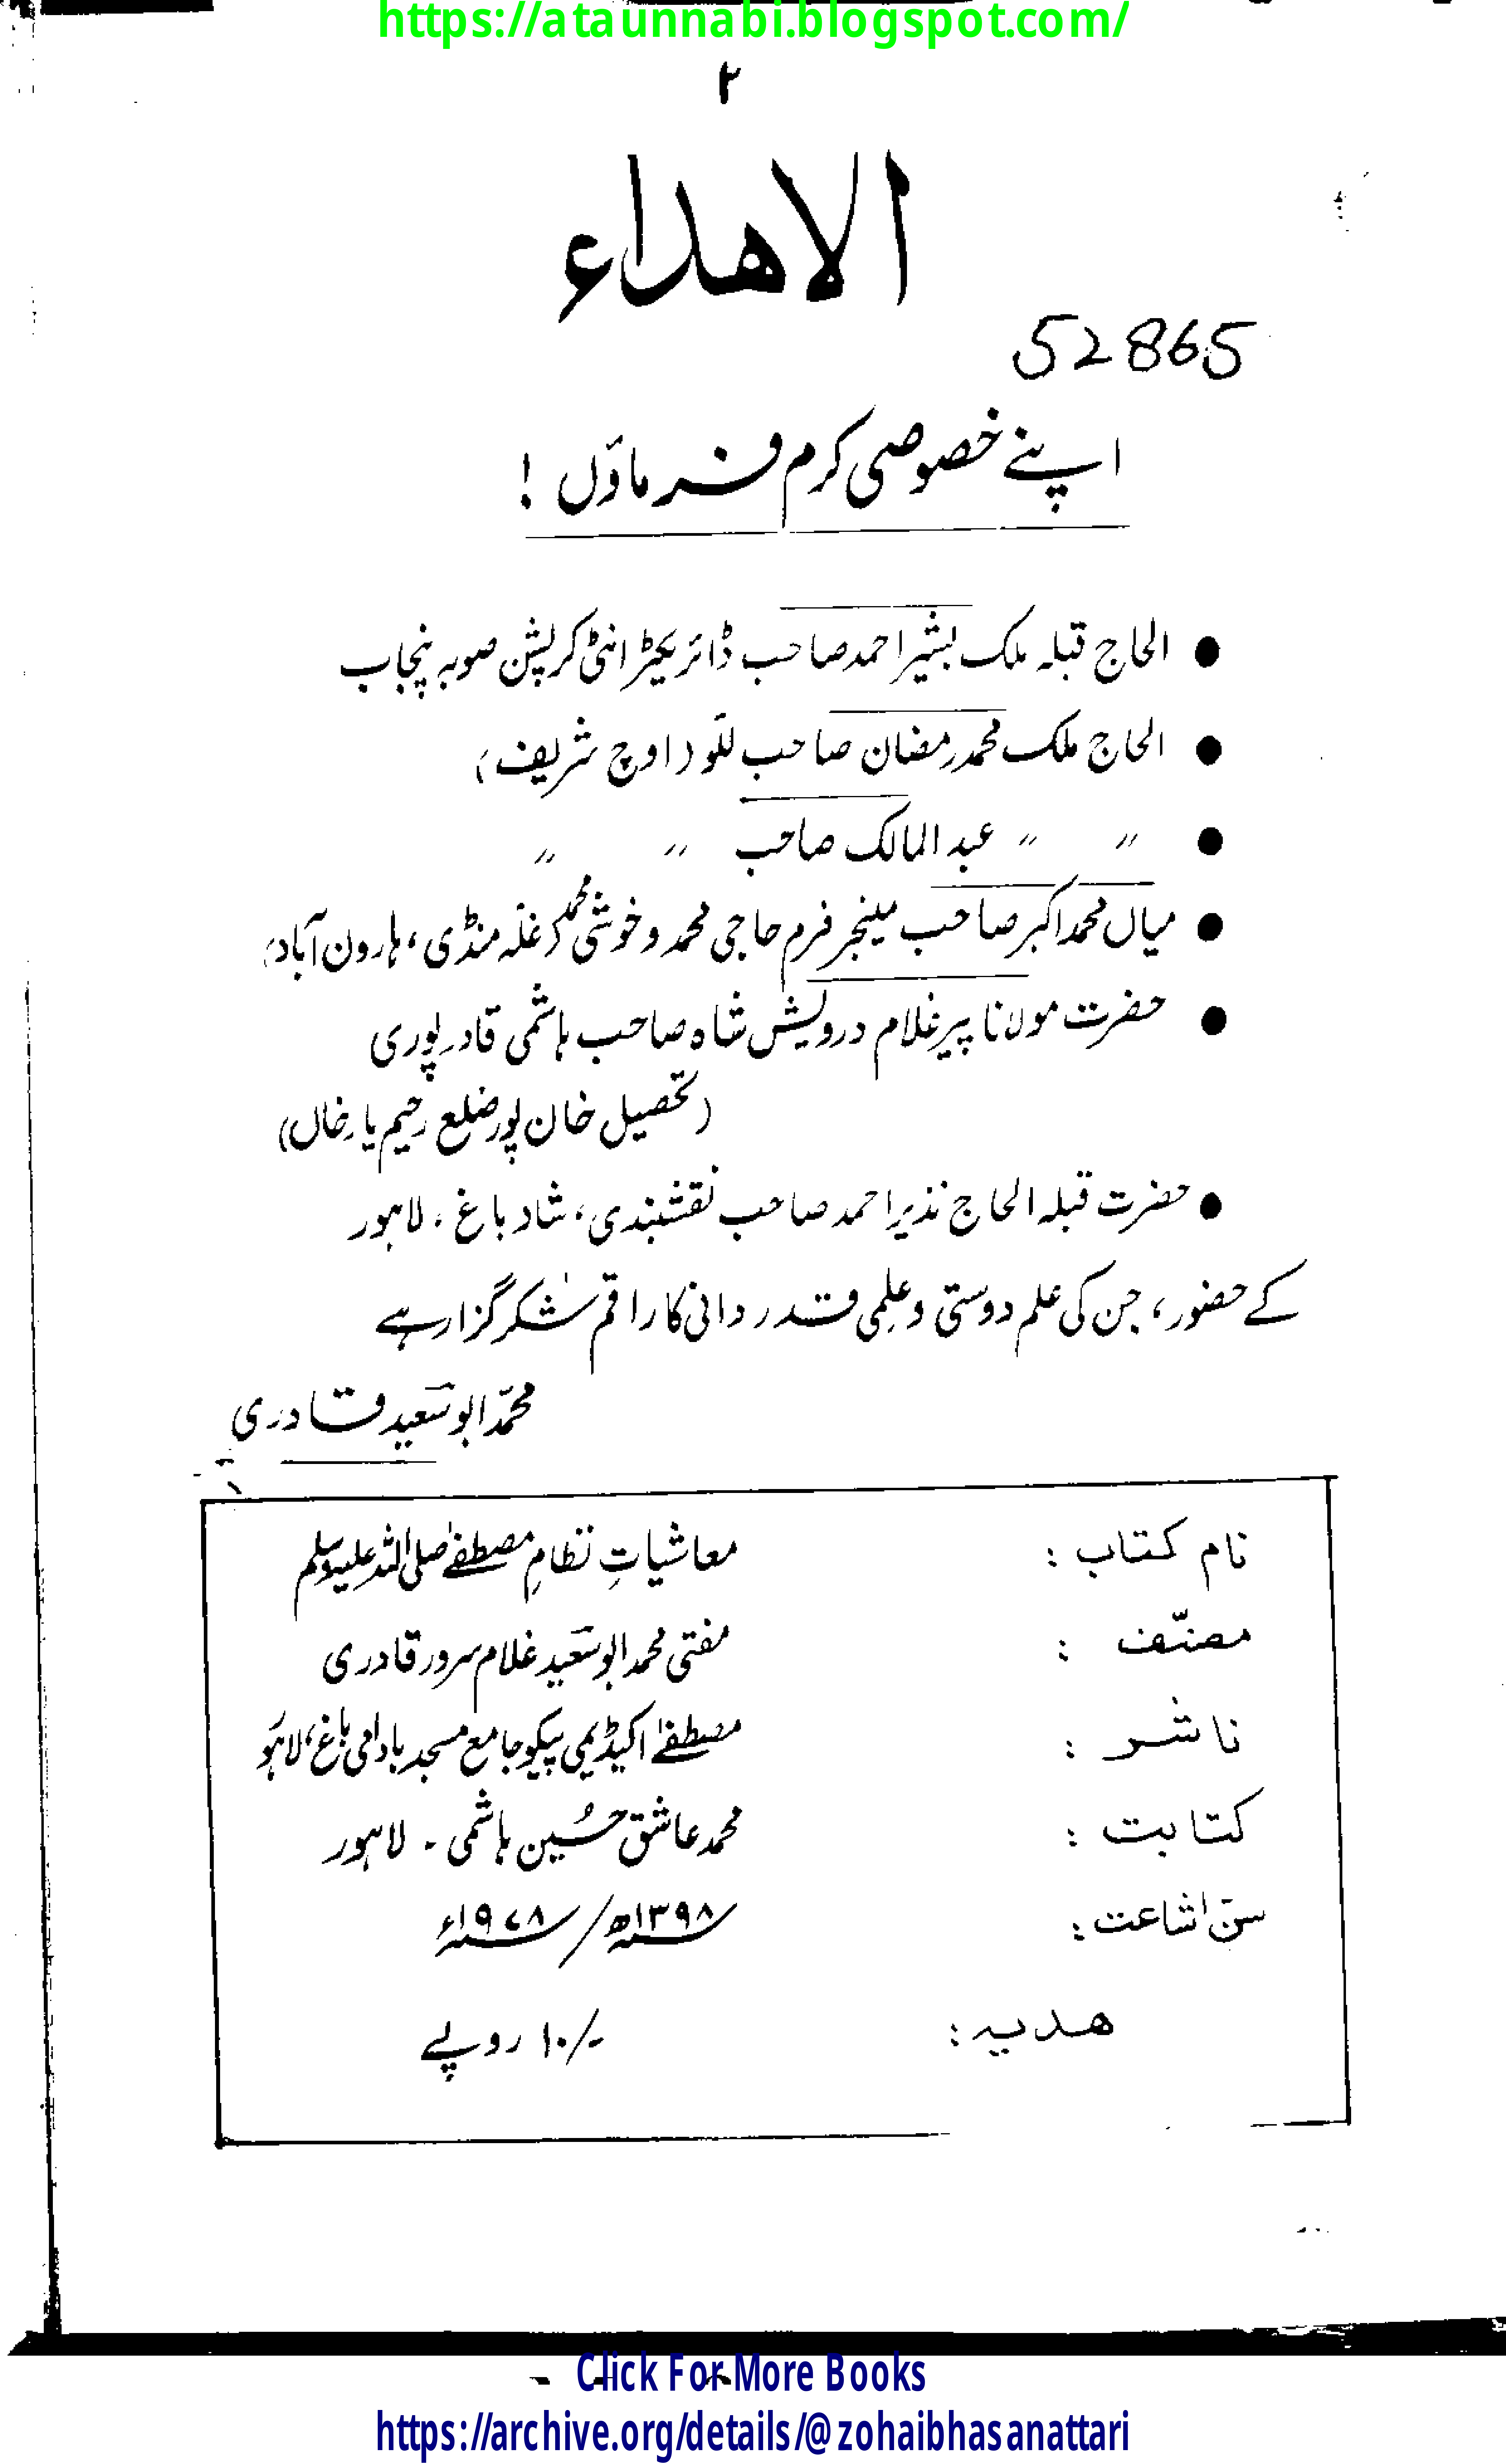 https://ataunnabi.blogspot.com/
۲
الاھداء
52865
اپنے خصوصی کرم فرماؤں !
● الحاج قبلہ ملک بشیر احمد صاحب ڈائریکٹر انٹی کرپشن صوبہ پنجاب
● الحاج ملک محمد رمضان صاحب للّو (اوچ شریف)
● 〃 〃 عبد المالک صاحب 〃 〃
● میاں محمد اکبر صاحب مینجر فرم حاجی محمد و خوشی محمد غلّہ منڈی، ہارون آباد
● حضرت مولانا پیر غلام درویش شاہ صاحب ہاشمی قادرپوری
(تحصیل خان پور ضلع رحیم یار خاں)
● حضرت قبلہ الحاج نذیر احمد صاحب نقشبندی، شاد باغ ۔ لاہور
کے حضور، جن کی علم دوستی و علمی قدر دانی کا راقم شکر گزار ہے
محمّد ابو سعید قادری
نام کتاب : معاشیاتِ نظامِ مصطفےٰ صلی اللہ علیہ وسلم
مصنّف : مفتی محمد ابو سعید غلام سرور قادری
ناشر : مصطفےٰ اکیڈیمی پیکو جامع مسجد بادامی باغ، لاہور
کتابت : محمد عاشق حُسین ہاشمی ۔ لاہور
سن اشاعت : ۱۳۹۸ھ / ۱۹۷۸ء
ھدیہ : ۱۰/- روپے
Click For More Books
https://archive.org/details/@zohaibhasanattari